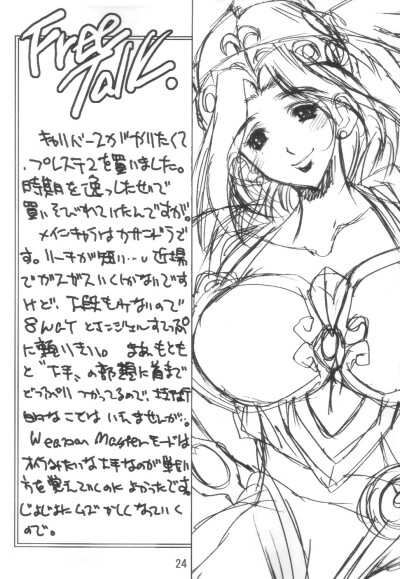 Free
Talk.
キャリバー2がやりたくて
プレステ2を買いました。
時期を逸したせいで
買いそびれていたんですが。
メインキャラはカサンドラで
す。リーチが短い…。近場
でガスガスいくしかないです
けど、下段もみないので
8WAYとエンジェルすてっぷ
に頼りきり。まあもとも
と“下手”の部類に首まで
どっぷりつかってるので、
なことはいえませんが。
Weapon Masterモードは
オイラみたいな下手なのが戦い
方を覚えていくのによかったです。
じょじょにムズかしくなっていく
ので。
24